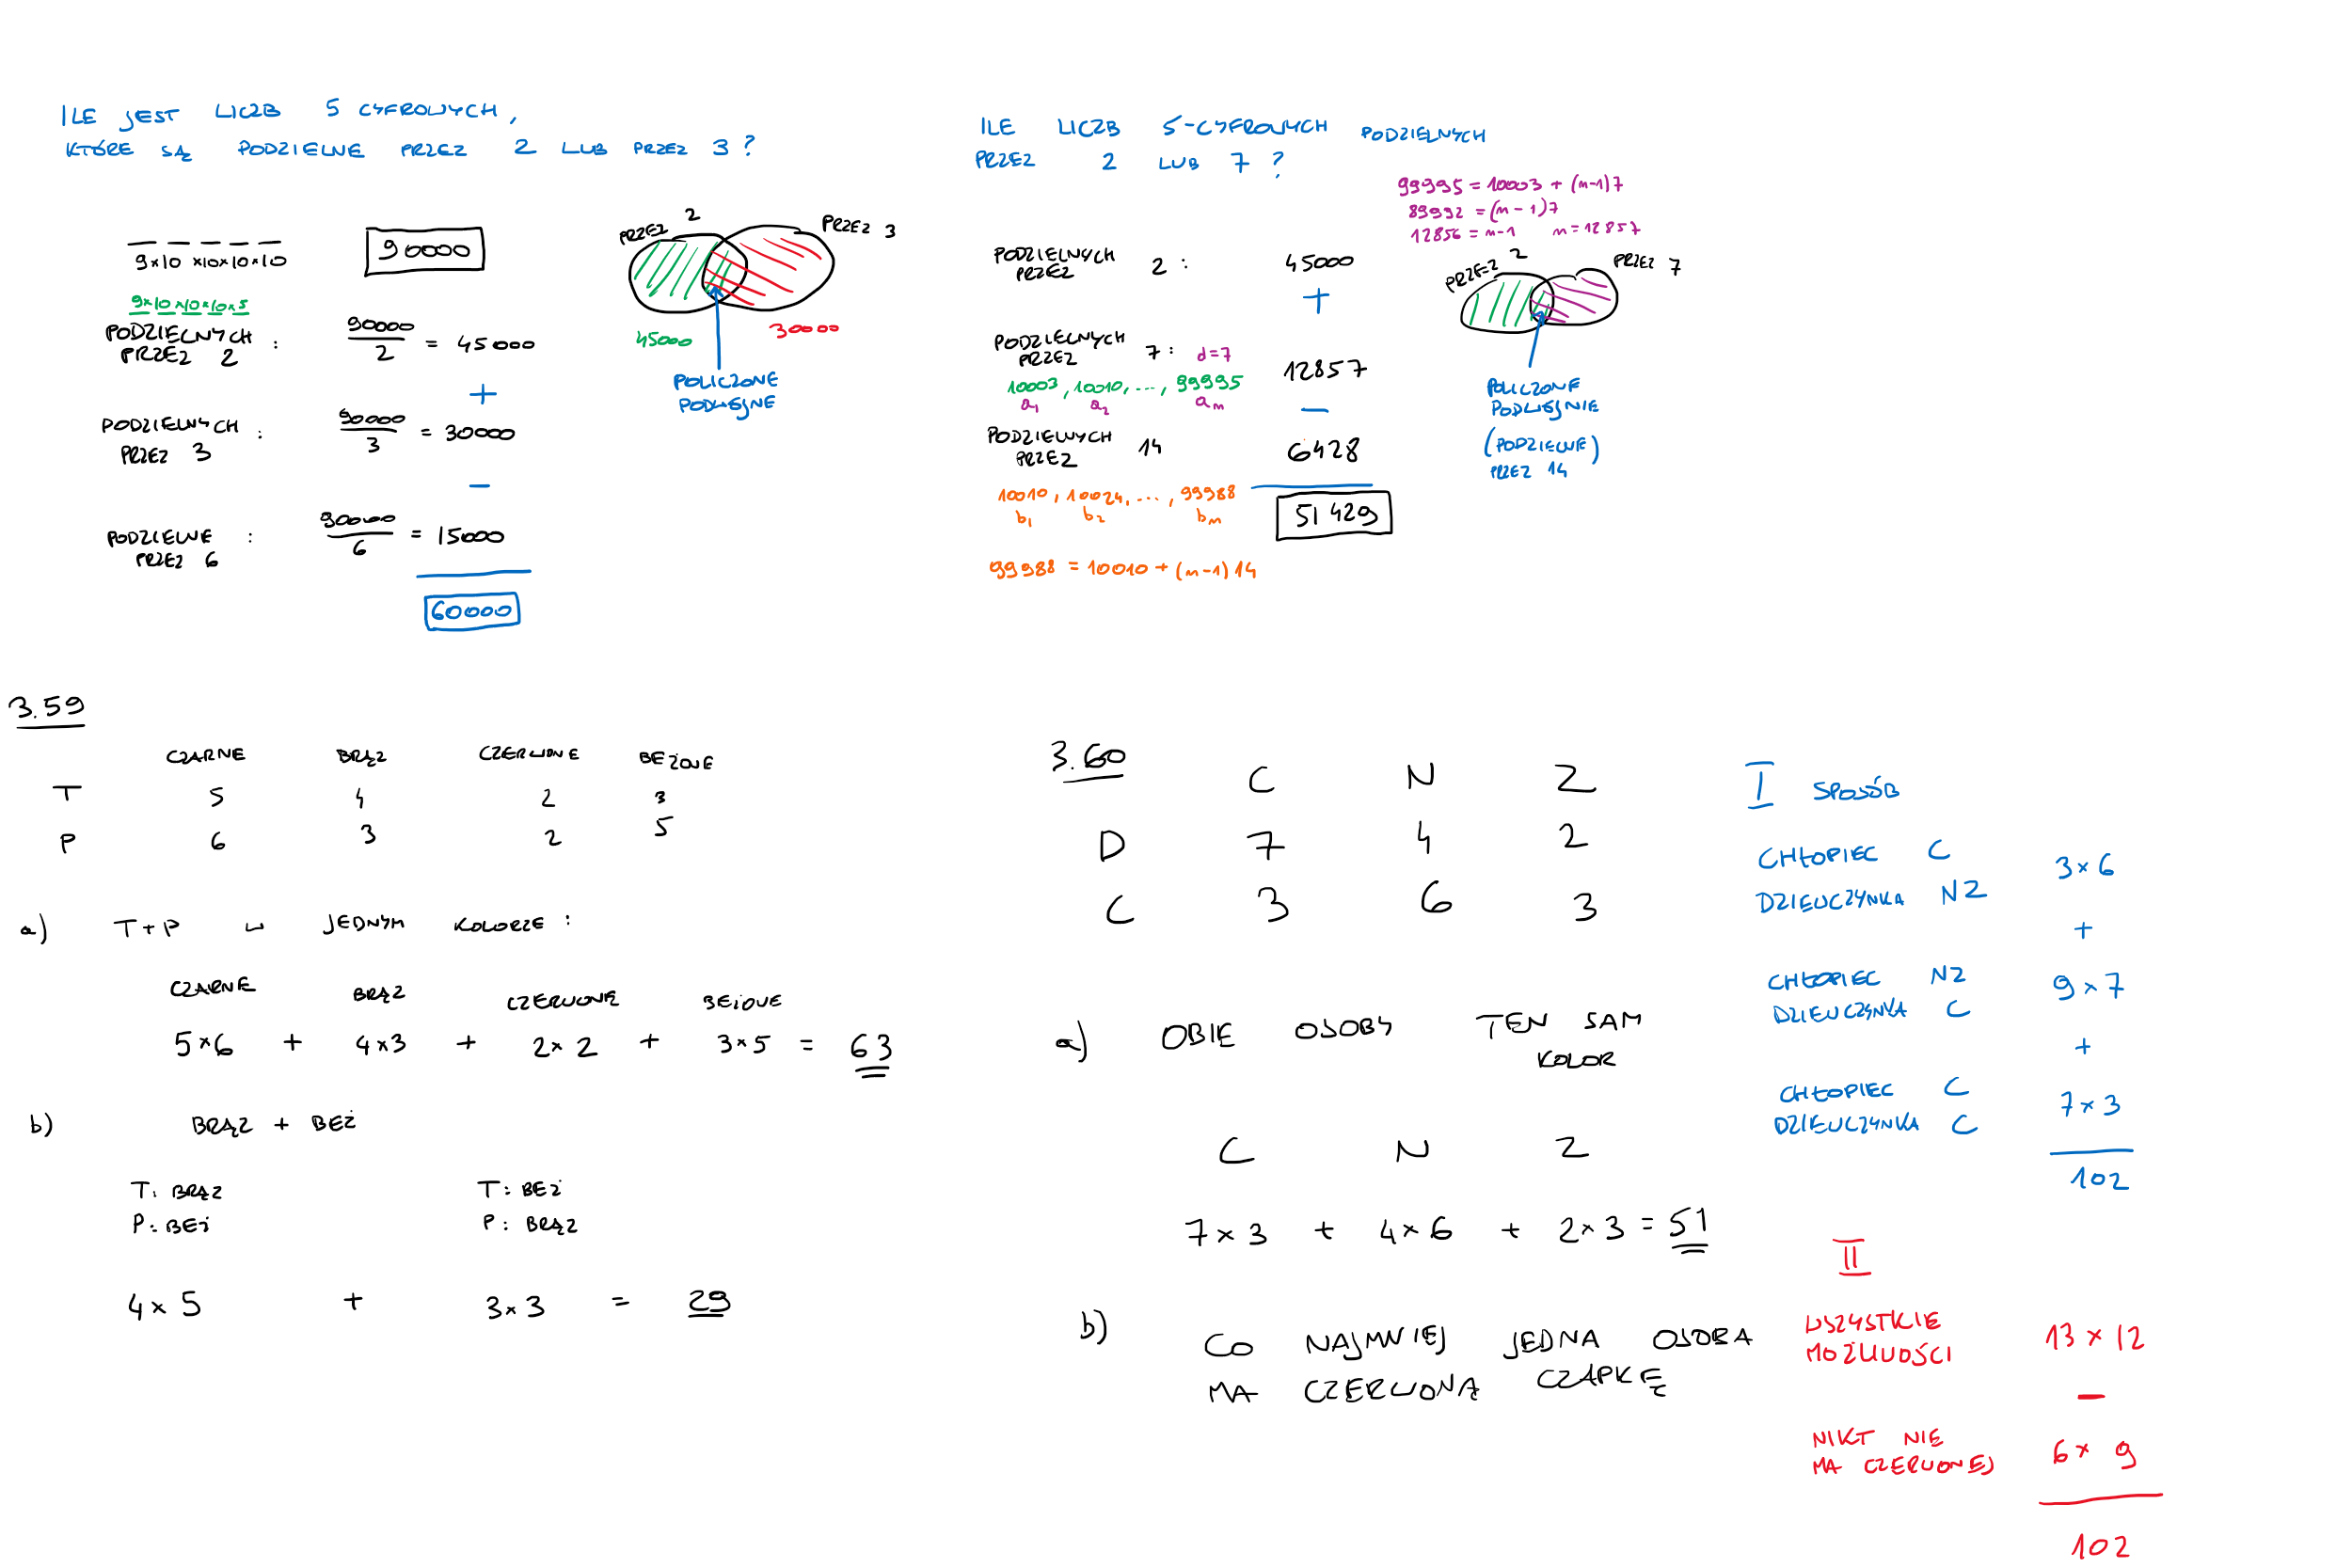 ILE JEST LICZB 5 CYFROWYCH,
KTÓRE SĄ PODZIELNE PRZEZ 2 LUB PRZEZ 3?
9×10×10×10×10
90000
9×10×10×10×5
PODZIELNYCH PRZEZ 2 : 90000/2 = 45000
+
PODZIELNYCH PRZEZ 3 : 90000/3 = 30000
−
PODZIELNE PRZEZ 6 : 90000/6 = 15000
60000
PRZEZ 2
PRZEZ 3
45000
30000
POLICZONE
PODWÓJNE
ILE LICZB 5-CYFROWYCH PODZIELNYCH
PRZEZ 2 LUB 7 ?
99995 = 10003 + (n-1)7
89992 = (n-1)7
12856 = n-1 n = 12857
PODZIELNYCH PRZEZ 2 : 45000
+
PODZIELNYCH PRZEZ 7 : d=7 12857
10003, 10010, ..., 99995
a1 a2 an
−
PODZIELNYCH PRZEZ 14 6428
10010, 10024, ..., 99988
b1 b2 bn
51429
99988 = 10010 + (n-1)14
PRZEZ 2
PRZEZ 7
POLICZONE
PODWÓJNIE
(PODZIELNE)
PRZEZ 14
3.59
CZARNE BRĄZ CZERWONE BEŻOWE
T 5 4 2 3
P 6 3 2 5
a) T+P W JEDNYM KOLORZE :
CZARNE BRĄZ CZERWONE BEŻOWE
5×6 + 4×3 + 2×2 + 3×5 = 63
b) BRĄZ + BEŻ
T: BRĄZ T: BEŻ
P: BEŻ P: BRĄZ
4×5 + 3×3 = 29
3.60
C N Z
D 7 4 2
C 3 6 3
a) OBIE OSOBY TEN SAM
KOLOR
C N Z
7×3 + 4×6 + 2×3 = 51
b) CO NAJMNIEJ JEDNA OSOBA
MA CZERWONĄ CZAPKĘ
I SPOSÓB
CHŁOPIEC C
DZIEWCZYNKA NZ
3×6
+
CHŁOPIEC NZ
DZIEWCZYNKA C
9×7
+
CHŁOPIEC C
DZIEWCZYNKA C
7×3
102
II
WSZYSTKIE
MOŻLIWOŚCI
13×12
−
NIKT NIE
MA CZERWONEJ
6×9
102